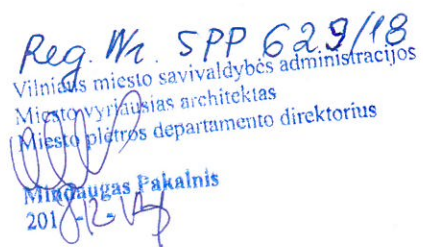 Reg. Nr. SPP 629/18
Vilniaus miesto savivaldybės administracijos
Miesto vyriausias architektas
Miesto plėtros departamento direktorius
Mindaugas Pakalnis
2018-12-